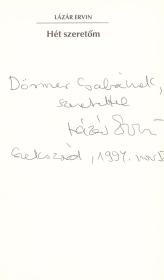 LÁZÁR ERVIN
Hét szeretőm
Dormer Csabának,
szeretettel
Lázár Ervin
Szekszárd, 1994. nov 5